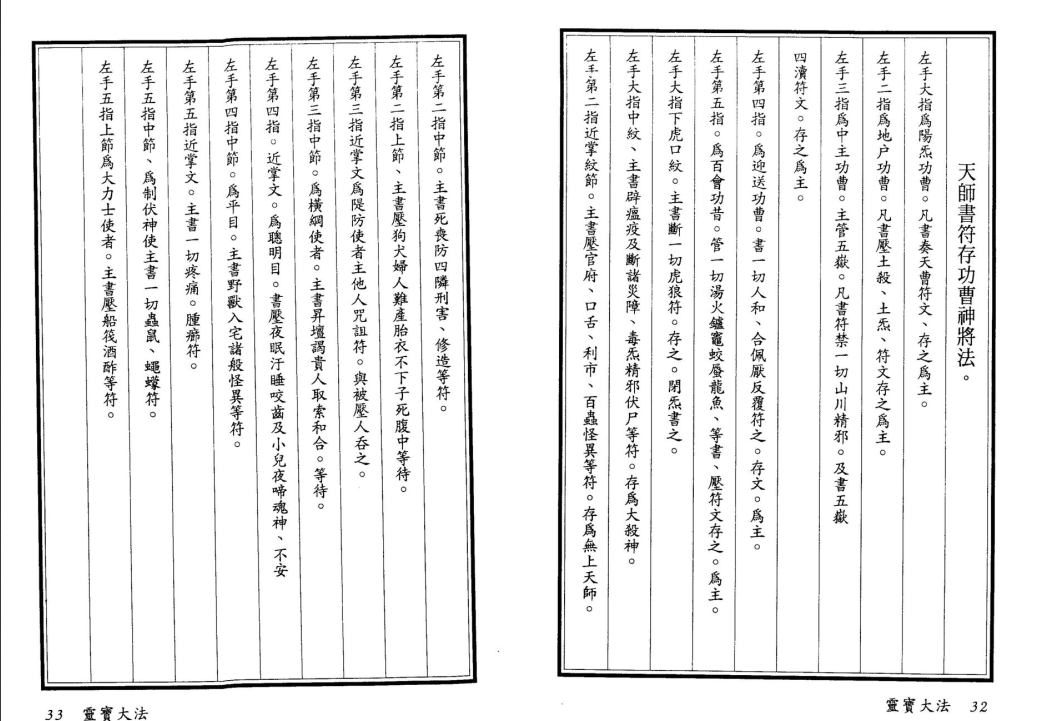 天師書符存功曹神將法。
左手大指爲陽炁功曹。凡書奏天曹符文、存之爲主。
左手二指爲地户功曹。凡書壓土殺、土炁、符文存之爲主。
左手三指爲中主功曹。主管五嶽。凡書符禁一切山川精邪。及書五嶽
四瀆符文。存之爲主。
左手第四指。爲迎送功曹。書一切人和、合佩厭反覆符之。存文。爲主。
左手第五指。爲百會功昔。管一切湯火鑪竈蛟蜃龍魚、等書、壓符文存之。爲主。
左手大指下虎口紋。主書斷一切虎狼符。存之。閉炁書之。
左手大指中紋、主書辟瘟疫及斷諸災障、毒炁精邪伏尸等符。存爲大殺神。
左手第二指近掌紋節。主書壓官府、口舌、利市、百蟲怪異等符。存爲無上天師。
靈寶大法 32
左手第二指中節。主書死喪防四隣刑害、修造等符。
左手第二指上節、主書壓狗犬婦人難產胎衣不下子死腹中等待。
左手第三指近掌文爲隄防使者主他人咒詛符。與被壓人吞之。
左手第三指中節。爲橫綱使者。主書昇壇謁貴人取索和合。等待。
左手第四指。近掌文。爲聰明目。書壓夜眠汗睡咬齒及小兒夜啼魂神、不安
左手第四指中節。爲平目。主書野獸入宅諸般怪異等符。
左手第五指近掌文。主書一切疼痛。腫癤符。
左手五指中節、爲制伏神使主書一切蟲鼠、蠅蠓符。
左手五指上節爲大力士使者。主書壓船筏酒酢等符。
33 靈寶大法